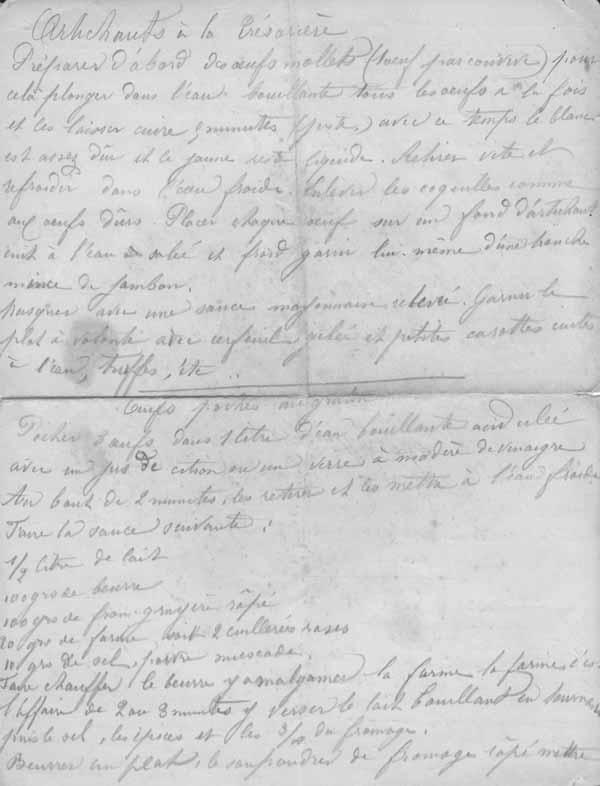 Artichauts à la Trésorière
Préparer d'abord des œufs mollets (1 œuf par convive) pour
cela plonger dans l'eau bouillante tous les œufs à la fois
et les laisser cuire 5 minutes (juste) avec ce temps le blanc
est assez dur et le jaune reste liquide. Retirer vite et
refroidir dans l'eau froide. Enlever les coquilles comme
aux œufs durs. Placer chaque œuf sur un fond d'artichaut
cuit à l'eau salée et froid garni lui-même d'une tranche
mince de jambon.
Masquer avec une sauce mayonnaise relevée. Garnir le
plat à volonté avec cerfeuil gelée et petites carottes cuites
à l'eau, truffes, etc
Œufs pochés au gratin
Pocher 3 œufs dans 1 litre d'eau bouillante acidulée
avec un jus de citron ou un verre à madère de vinaigre
Au bout de 2 minutes, les retirer et les mettre à l'eau froide
Faire la sauce suivante :
1/2 litre de lait
100 grs de beurre
100 grs de from. gruyère râpé
20 grs de farine soit 2 cuillerées rases
10 grs de sel, poivre muscade.
Faire chauffer le beurre y amalgamer la farine la farine c'est
l'affaire de 2 ou 3 minutes y verser le lait bouillant en tournant
puis le sel, les épices et les 3/4 du fromage.
Beurrer un plat, le saupoudrer de fromage râpé mettre